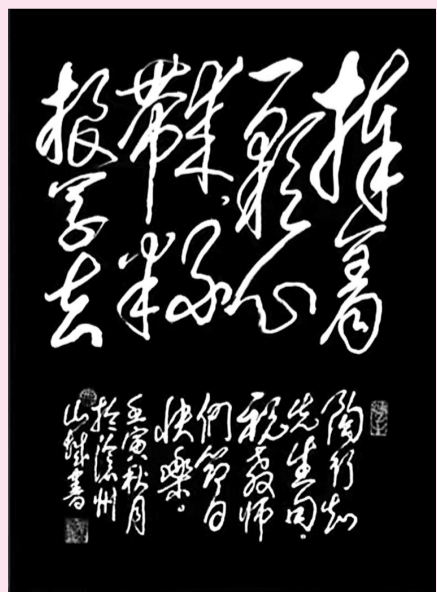 捧着
一颗心
来，不
带半
根草去
陶行知
先生句。
祝教师
们节日
快樂。
壬寅秋月
於滄州
山書